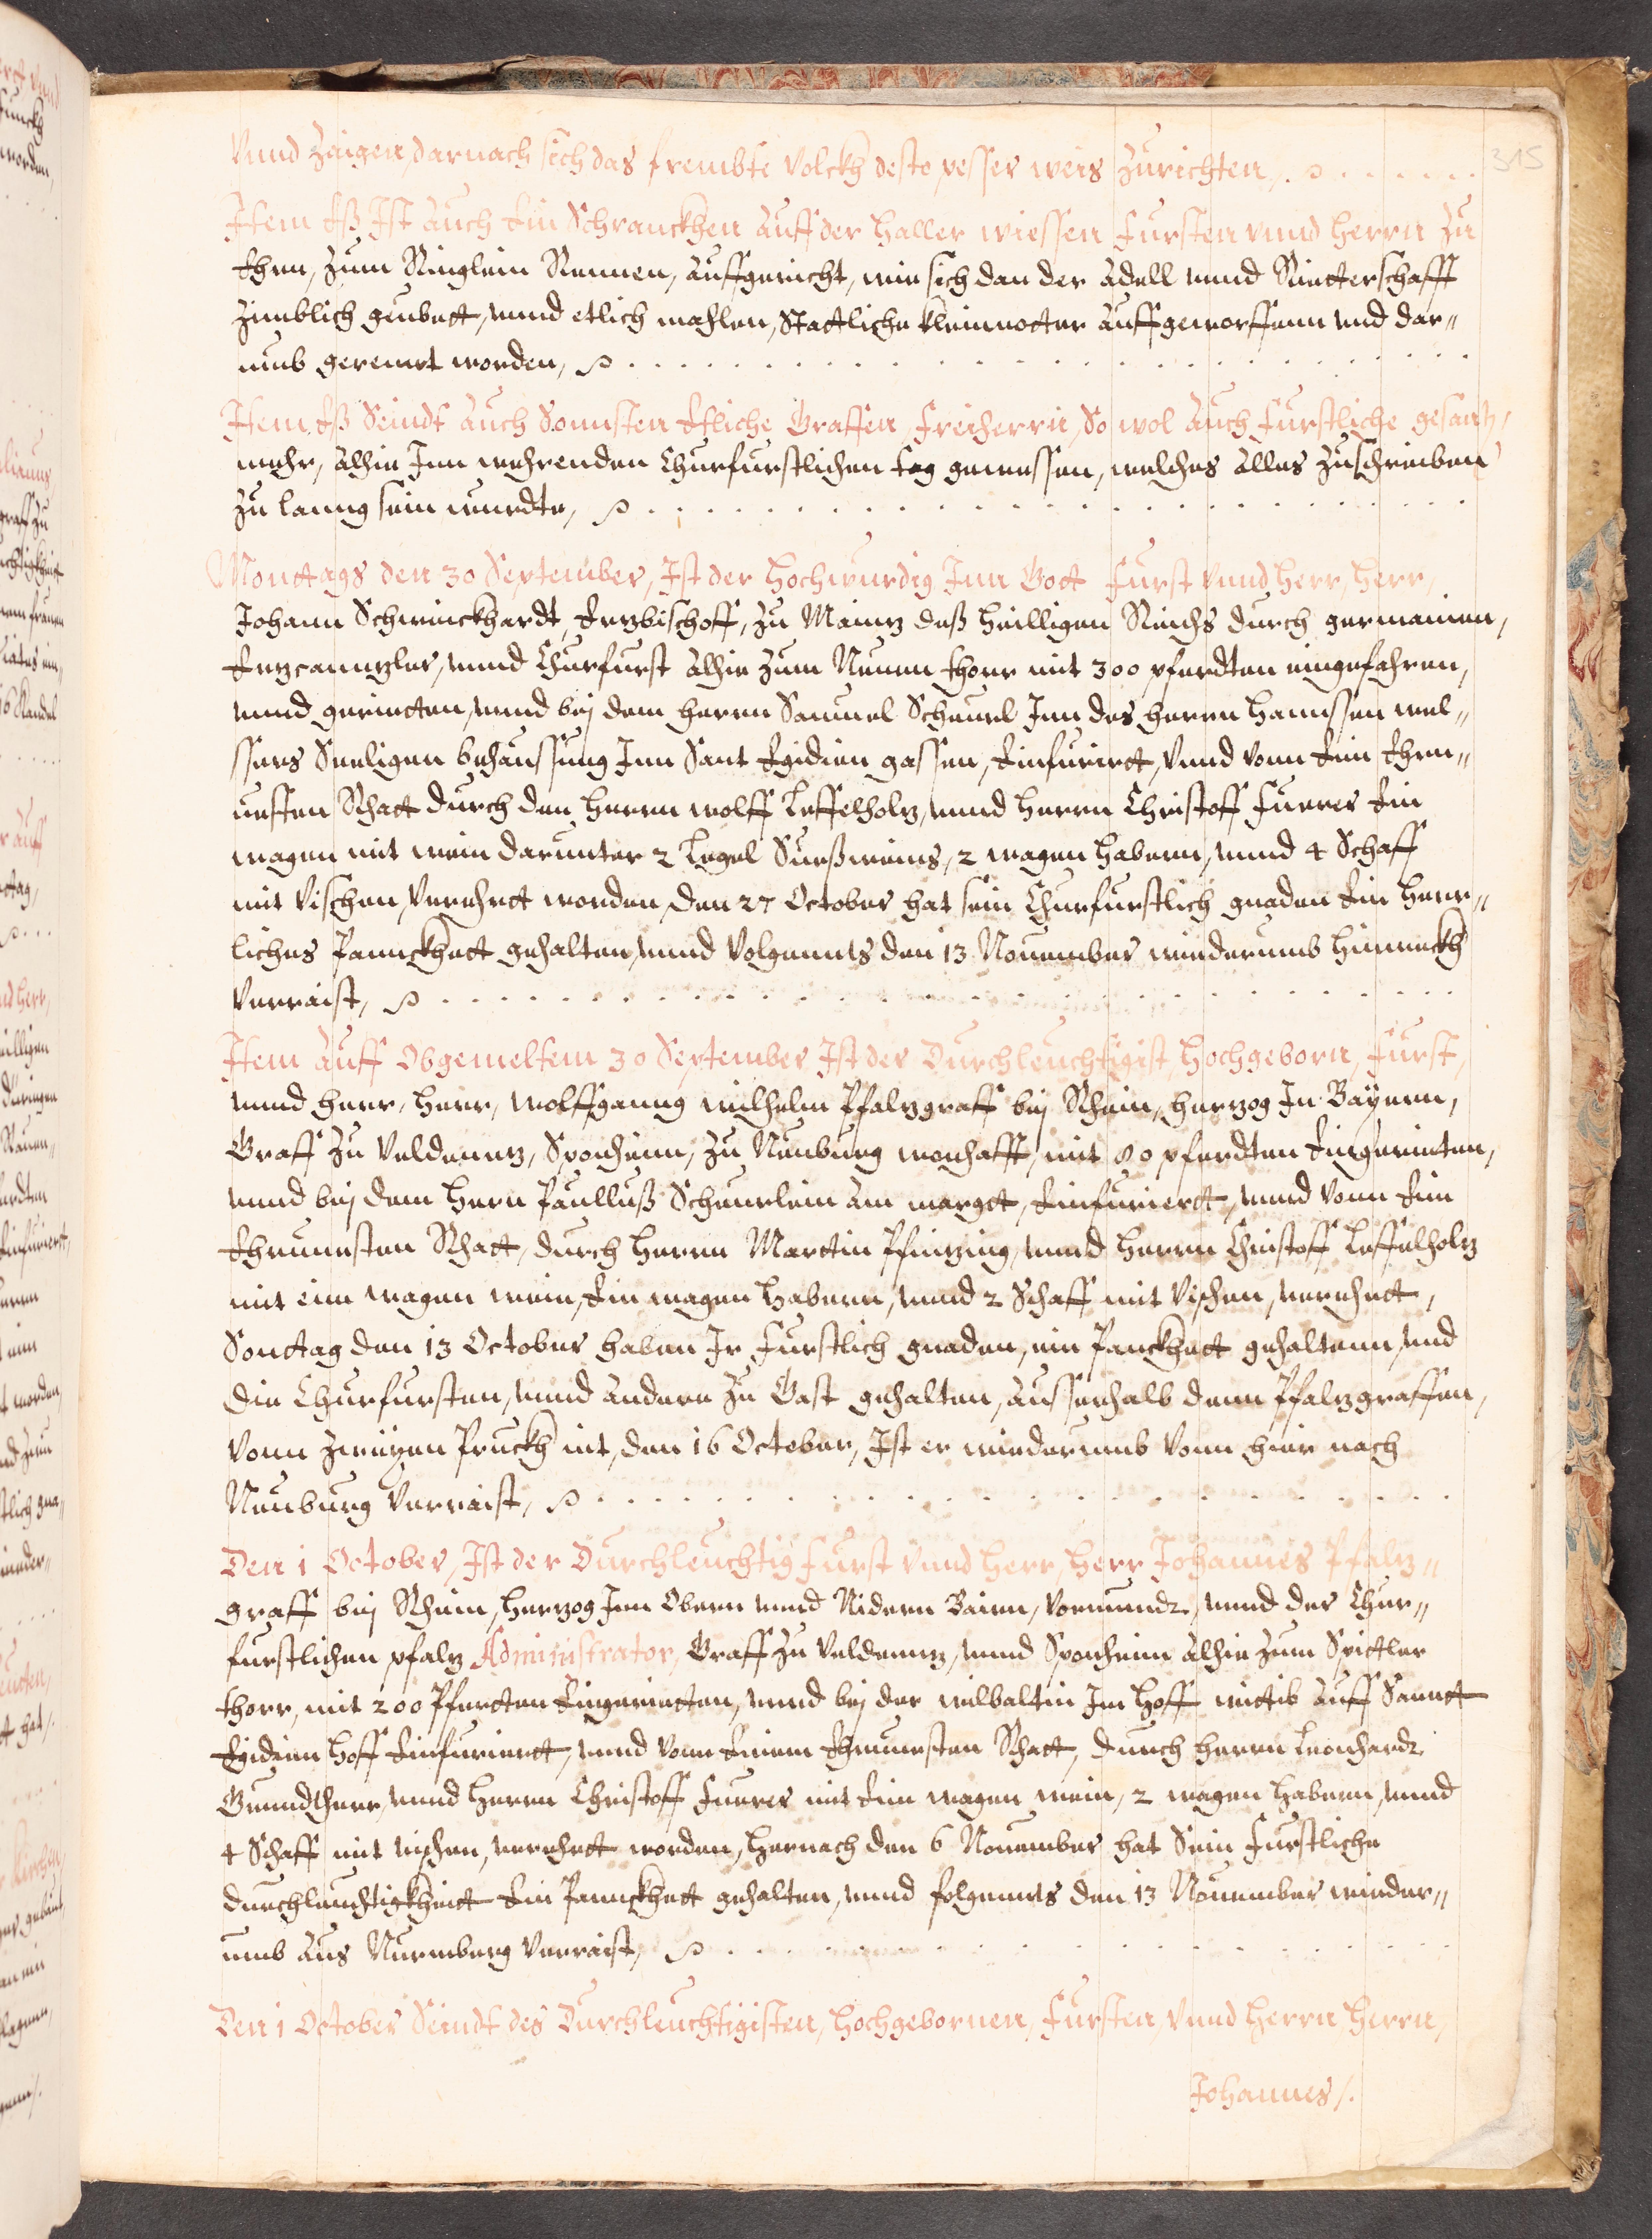 315
Vnnd Zaigen, darnach sich das frembte Volckh desto pesser weis Zurichten,
Item Eß Ist auch Ein Schranckhen auff der Haller wiessen Fursten vnnd Herrn Zu
Ehrn, Zum Ringlein Rennen, auffgericht, wie sich dan der Adell vnnd Rietterschafft
Zimblich geubett, vnnd etlich mahlen, Stattliche Kleinnotter auffgeworffenn vnd dar„
umb gerennt worden,
Item Eß Seindt auch Sonnsten Etliche Graffen, Freiherrn, So wol auch Furstliche gesant,
mehr, alhie Inn wehrenden Churfurstlichen tag gewessen, welches alles Zuschreiben
Zu lanng sein wurdte,
Monttags den 30 September, Ist der Hochwurdig Inn Gott Furst vnnd Herr, Herr,
Johann Schweickhardt, Ertzbischoff, Zu Maintz deß Heilligen Reichs durch germanien,
Ertzcanntzler, vnnd Churfurst alhie Zum Neuen thorr mit 300 pferdten eingefahren,
vnnd gerietten, vnnd bej dem Herrn Samuel Scheurl Inn des Herrn Hannssen wel„
ssers Seeligen behaussung Inn Sant Egidien gassen, Einfurirtt, vnnd vonn Ein Ehrn„
uesten Rhatt durch den Herrn wolff Leffelholtz, vnnd Herrn Christoff Fuerer Ein
wagen mit wein darunter 2 Legel Sueßweins, 2 wagen Habern, vnnd 4 Schaff
mit Vischen, Verehrtt worden, den 27 October hat sein Churfurstlich gnaden Ein Herr„
liches Panckhett gehalten, vnnd Volgennts den 13 Nouember wiederumb hinweckh
Verraist,
Item auff Obgemeltem 30 September Ist der Durchleuchtigist, Hochgeborn, Furst,
vnnd Herr, Herr, Wolffganng wilhelm Pfaltzgraff bej Rhein, Hertzog In Bayern,
Graff Zu Veldenntz, Sponheim, Zu Neuburg wonhafft, mit 80 pferdten Eingerietten,
vnnd bej dem Hern Paulluß Scheurlein am margtt, Einfurierтt, vnnd vonn Ein
Ehrnuesten Rhatt, durch Herrn Marttin Pfintzing, vnnd Herrn Christoff Leffelholtz
mit eim wagen wein, Ein wagen Habern, vnnd 2 Schaff mit Vischen, verehrtt,
Sonttag den 13 October haben Ir Furstlich gnaden, ein Panckhett gehaltenn, vnd
die Churfursten, vnnd andere Zu Gast gehalten, ausserhalb denn Pfaltzgraffen,
vonn Zweiyen Pruckh nit, den 16 October, Ist er wiederumb vonn hier nach
Neuburg Verraist,
Den 1 October, Ist der Durchleuchtig Furst vnnd Herr, Herr Johannes Pfaltz„
graff bej Rhein, Hertzog Inn Obern vnnd Nidern Bairn, Vormundt, vnnd der Chur„
furstlichen pfaltz Administrator, Graff Zu Veldenntz, vnnd Sponheim alhie Zum Spittler
thorr, mit 200 Pferтten Eingerietten, vnnd bej der wilbaltin Im Hoff wittib auff Sannct
Egidien Hoff Einfurirtt, vnnd vonn Einem Ehrnuesten Rhatt, durch Herrn Leonhardt
Grundtherr, vnnd Herrn Christoff Fuerer mit Eim wagen wein, 2 wagen Habern, vnnd
4 Schaff mit vischen, verehrtt worden, Hernach den 6 Nouember hat Sein Furstliche
durchleuchtigkheitt Ein Panckhett gehalten, vnnd folgennts den 13 Nouember wieder„
umb aus Nurmberg Verraist,
Den 1 October Seindt des Durchleuchtigisten, Hochgebornen, Fursten, vnnd Herrn, Herrn,
Johannes /.